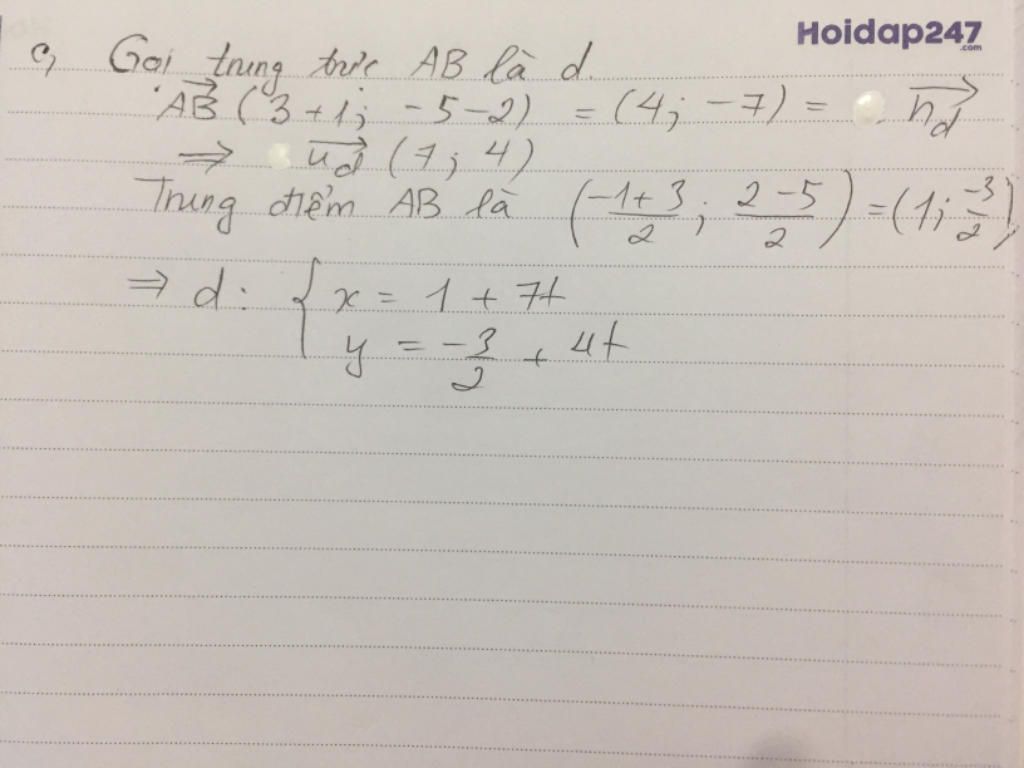 Hoidap247
.com
c, Gọi trung trực AB là d.
\overrightarrow{AB} (3 + 1; -5 - 2) = (4; -7) = \overrightarrow{n_d}
⇒ \overrightarrow{u_d} (7; 4)
Trung điểm AB là (\frac{-1+3}{2}; \frac{2-5}{2}) = (1; \frac{-3}{2}),
⇒ d: { x = 1 + 7t
y = \frac{-3}{2} + 4t